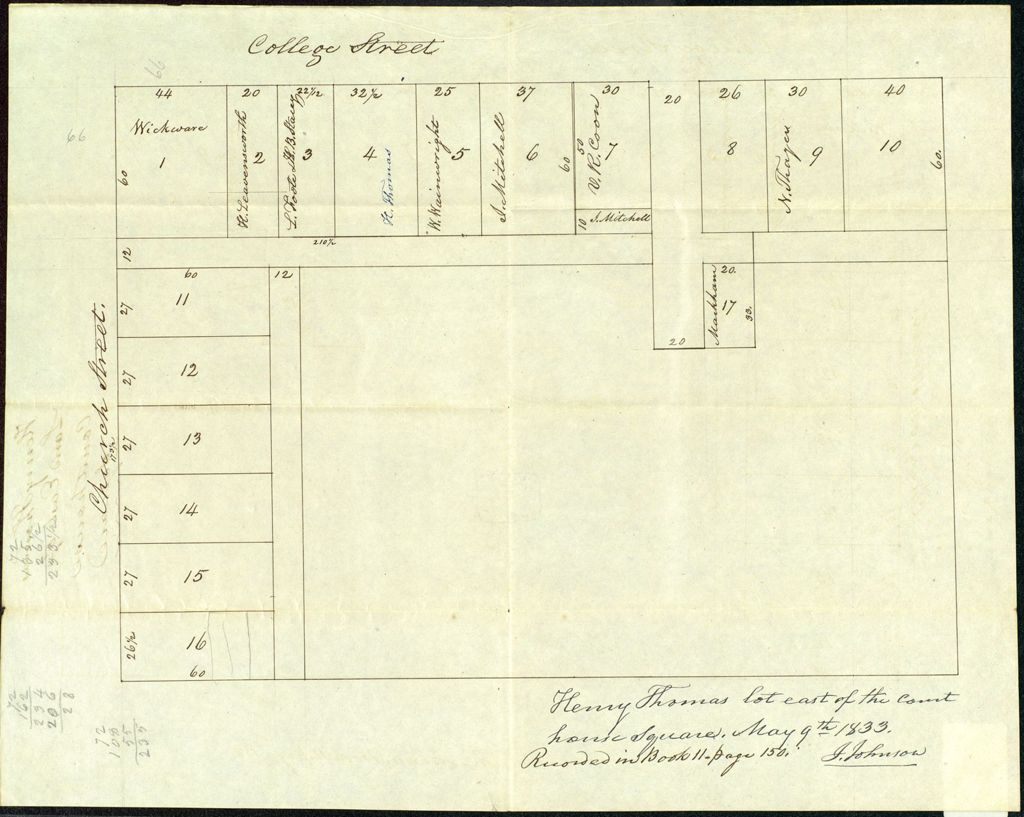 College Street
66
66
44 20 22 1/2 32 1/2 25 37 30 20 26 30 40
Wickware
1
60
H. Leavensworth
2
L. Foote & H. B. Stacy
3
4
H. Thomas
W. Wainwright
5
J. Mitchell
6
60
50
V. R. Coon
7
10 J. Mitchell
8
N. Thayer
9
10
60.
12
210 1/2
60
12
27
11
27
12
27
13
27
14
27
15
26 1/2
16
60
Church Street.
173 1/2
20
Markham
20.
17
33.
Henry Thomas lot east of the court
house Square. May 9th 1833.
Recorded in Book 11 - page 150. J. Johnson
72
162
234
206
28
72
108
55
235